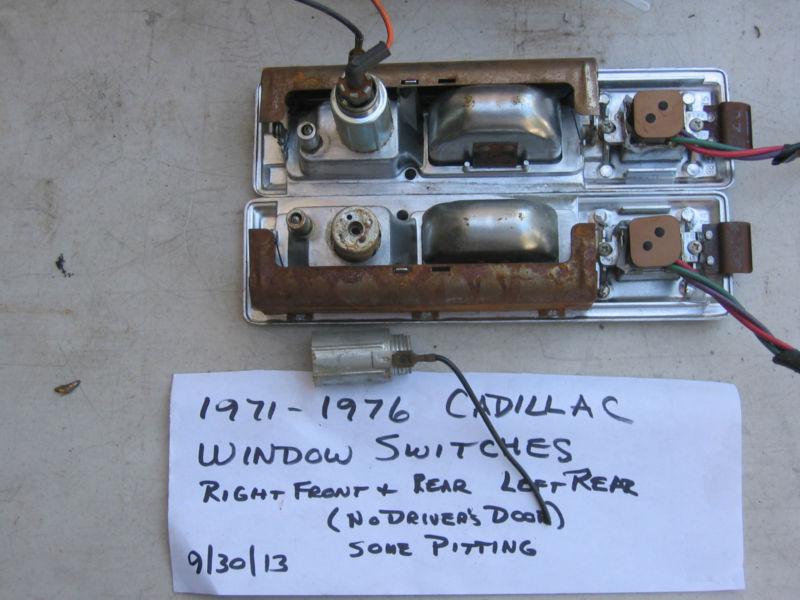 1971-1976 CADILLAC
WINDOW SWITCHES
RIGHT FRONT + REAR LEFT REAR
(NO DRIVER'S DOOR)
SOME PITTING
9/30/13